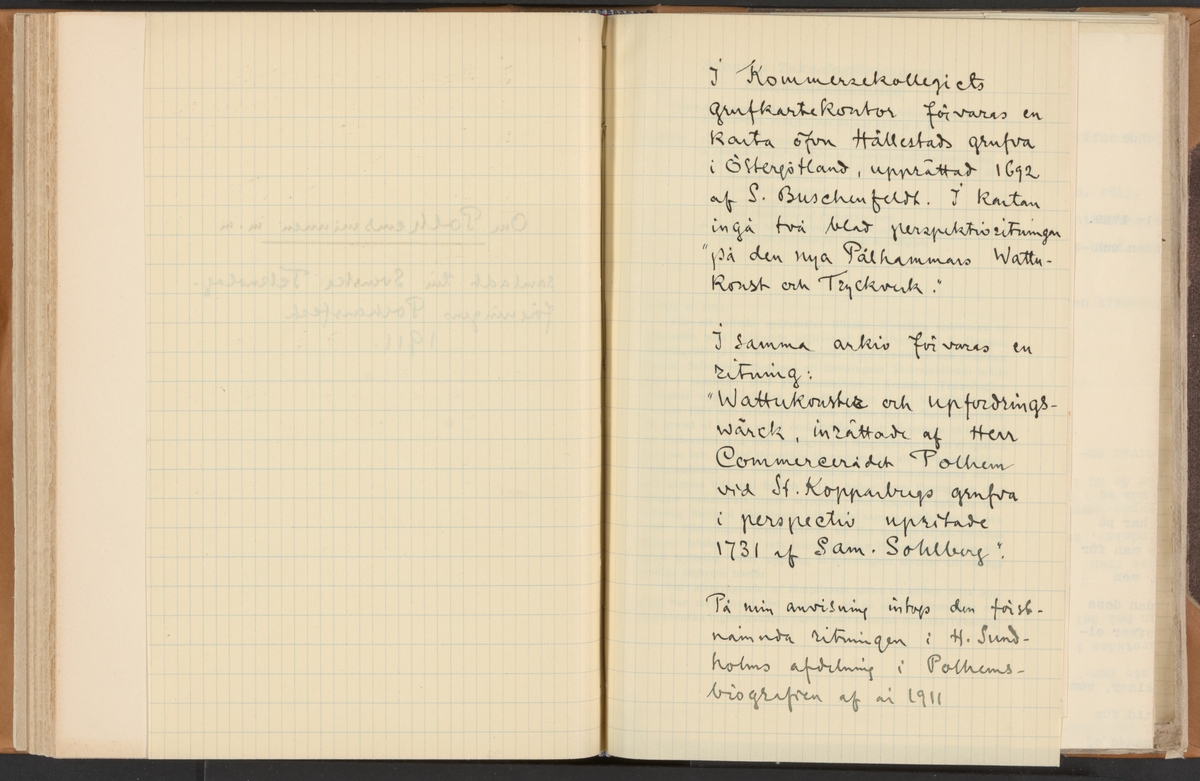 I Kommersekollegiets
grufkartekontor förvaras en
karta öfver Hällestads grufva
i Östergötland, upprättad 1692
af S. Buschenfeldt. I kartan
ingå två blad perspektivritningar
"på den nya Pålhammars Wattu-
konst och Tryckverk."
I samma arkiv förvaras en
ritning:
"Wattukonster och upfordrings-
wärck, inrättade af Herr
Commercerådet Polhem
vid St. Kopparbergs grufva
i perspectiv upritade
1731 af Sam. Sohlberg".
På min anvisning intogs den först-
nämnda ritningen i H. Sund-
holms afdelning i Polhems-
biografien af år 1911